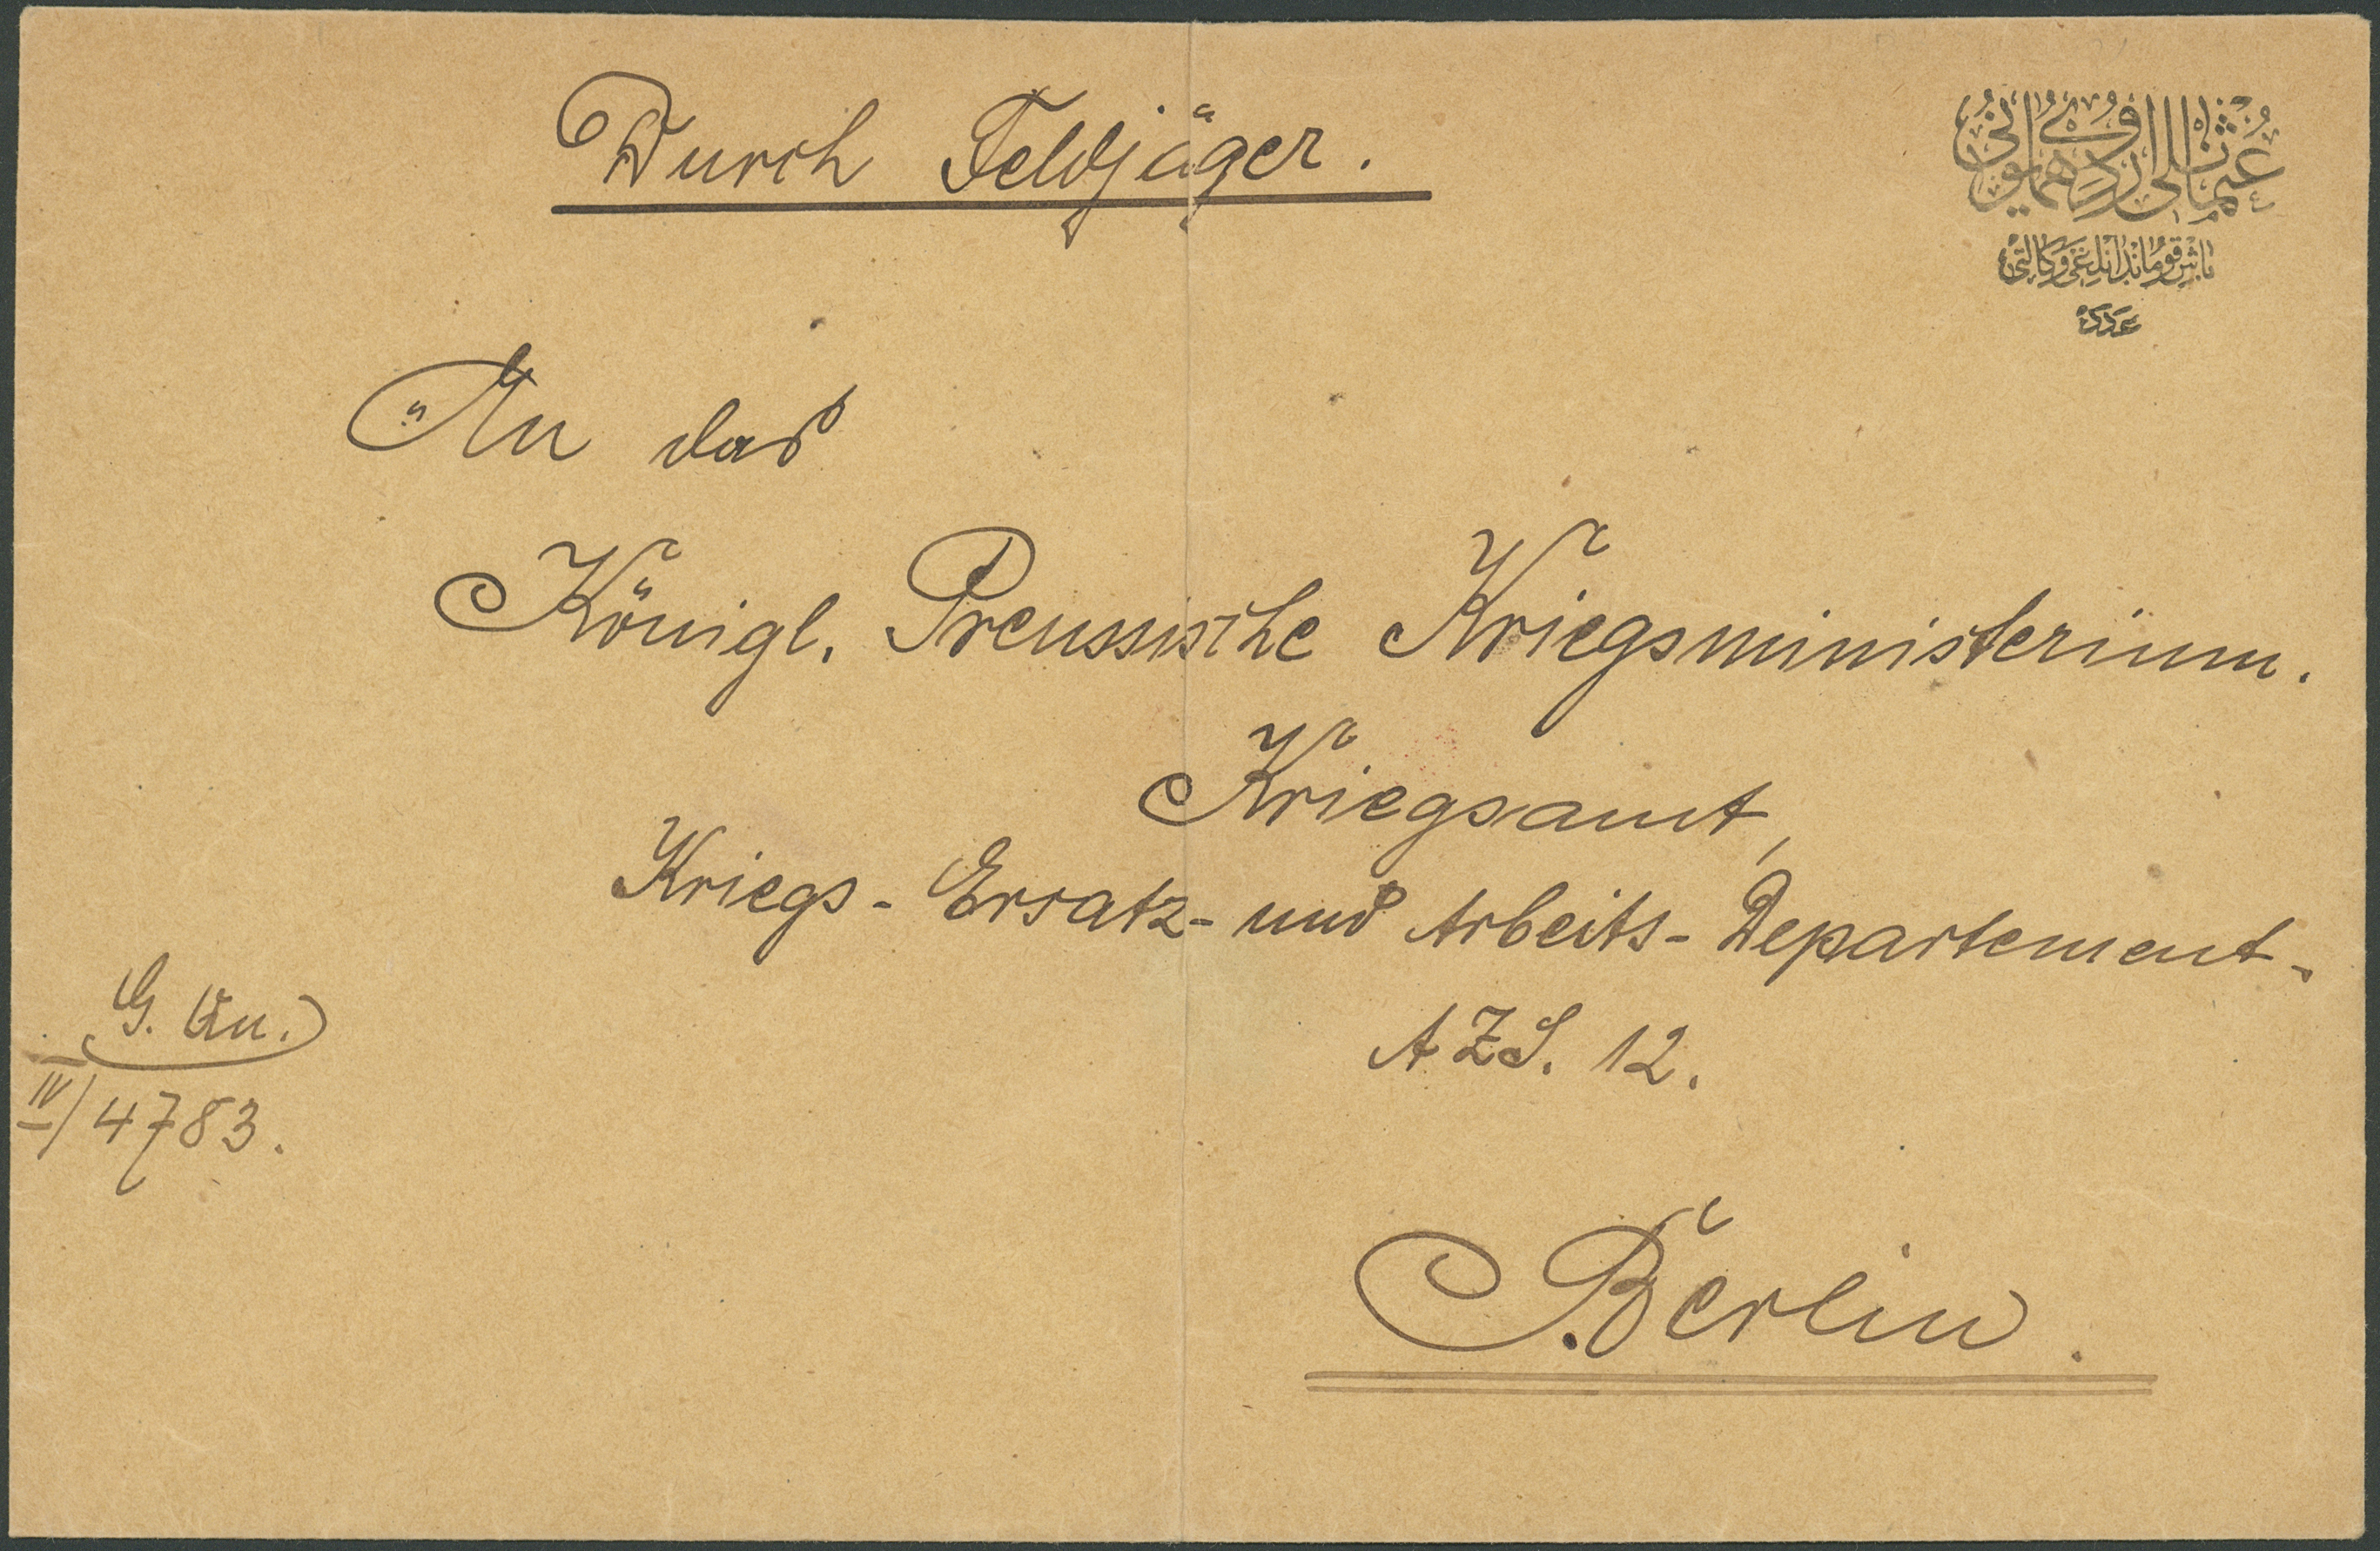 Durch Feldjäger.
عثمانلی اردوی همایونی
باش قوماندانلغی وكالتی
عدد
An das
Königl. Preussische Kriegsministerium.
Kriegsamt,
Kriegs-Ersatz- und Arbeits-Departement.
AZS. 12.
IV/4783.
Berlin.